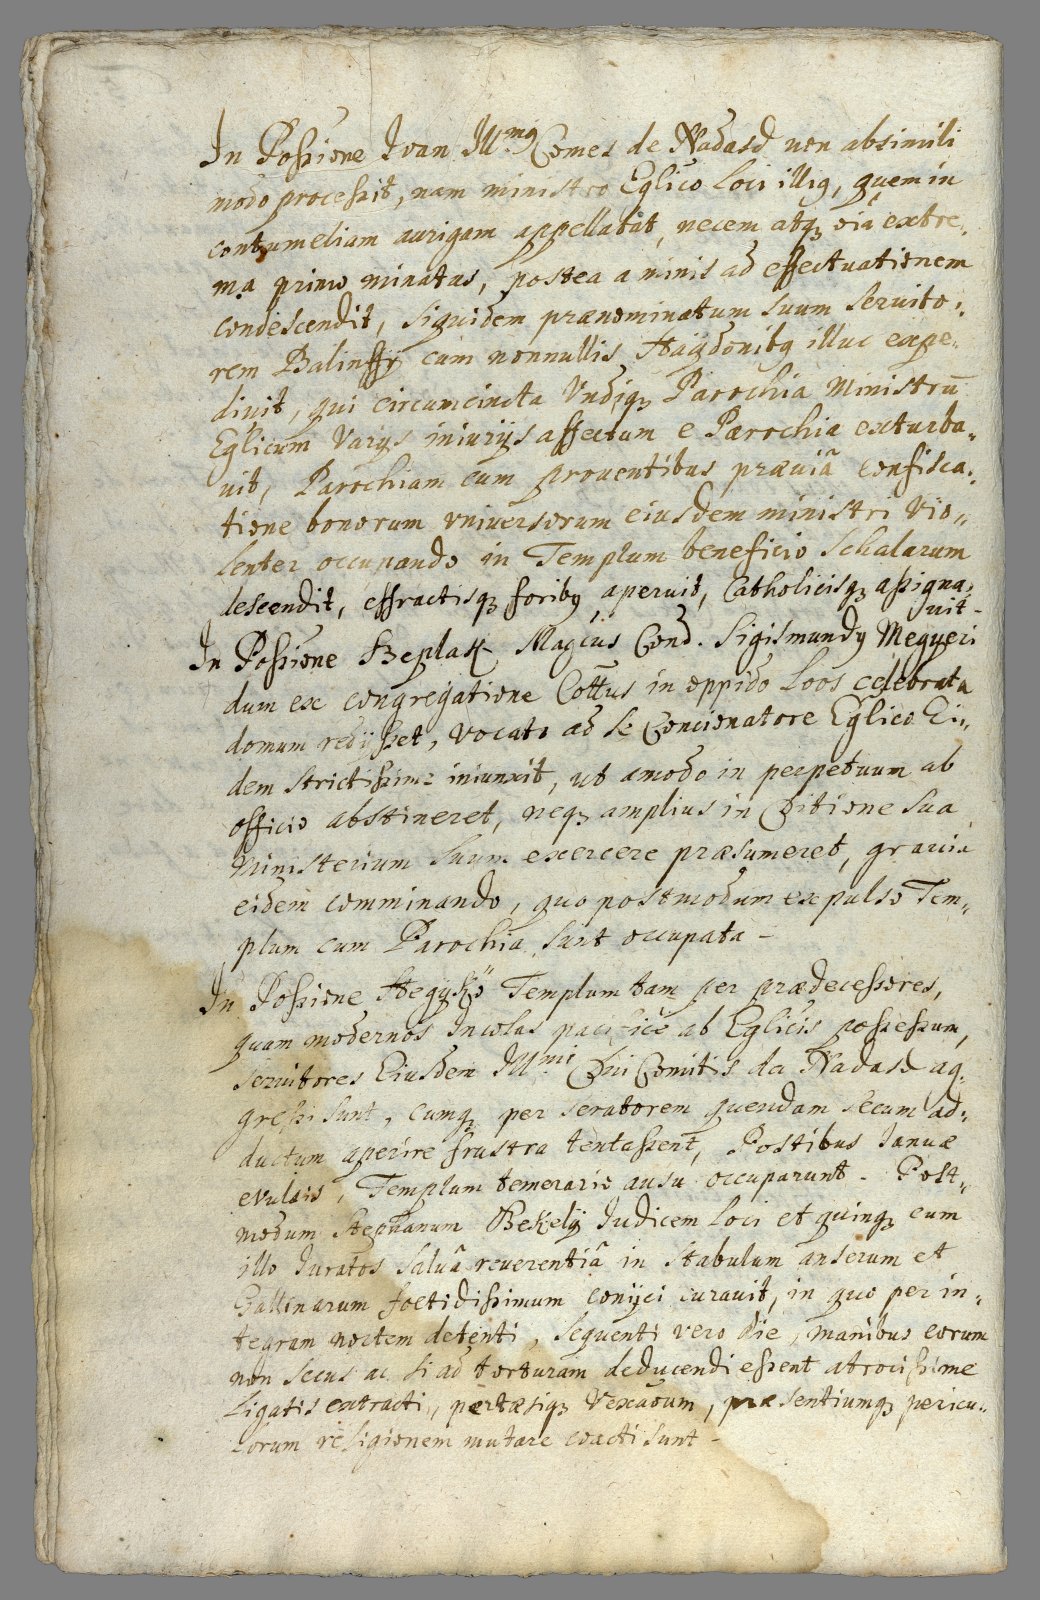 In Possione Ivan Ill.mq Comes de Nadasd non absimili
modo processit, nam ministro Eglico Loci illiq, quem in
contumeliam aurigam appellabat, necem atq; via extre„
ma primo minatus, postea a minis ad effectuationem
condescendit, siquidem prænominatum suum seruito„
rem Balinffy cum nonnullis Haÿdonibq illuc expe„
diuit, qui circumcincta Undiq; Parochia Ministrũ
Eglicum Varÿs iniurÿs affectum e Parochia exturba„
uit, Parochiam cum prouentibus præuiâ confisca„
tione bonorum vniuersorum eiusdem ministri Vio„
lenter occupando in Templum beneficio Schalarum
descendit, effractisq; foribq aperuit, Catholicisq; assigna„
uit -
In Possione Szeplak Magcus Cond. Sigismundq Megyeri
dum ex congregatione Cottus in oppido Loos celebrata
domum redÿsset, Vocato ad se Concionatore Eglico Ei„
dem strictissime iniunxit, ut amodo in perpetuum ab
officio abstineret, neq; amplius in Ditione sua
Ministerium suum exercere præsumeret, grauia
eidem comminando, quo postmodum expulso Tem„
plum cum Parochia sunt occupata -
In Possione Hegykö Templum tam per prædecessores,
quam modernos Incolas pacificè ab Eglicis possessum,
seruitores Eiusdem Ill.mi Dni Comitis de Nadasd ag„
gressi sunt, cumq; per seratorem quendam secum ad„
ductum aperire frustra tentassent, Postibus Ianuæ
evulsis, Templum temerario ausu occuparunt - Post„
modum Stephanum Bekesÿ Iudicem loci et quinq; cum
illo Iuratos saluâ reuerentiâ in stabulum anserum et
Gallinarum foetidissimum conÿci curauit, in quo per in„
tegram noctem detenti, sequenti vero die, manibus eorum
non secus ac si ad torturam deducendi essent atrocissime
Ligatis extracti, pertæsiq; Vexarum, præsentiumq; pericu„
lorum religionem mutare coacti sunt -